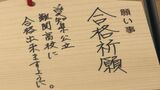 願い事
合格祈願
愛知県公立
難関高校に
合格出来ますように。